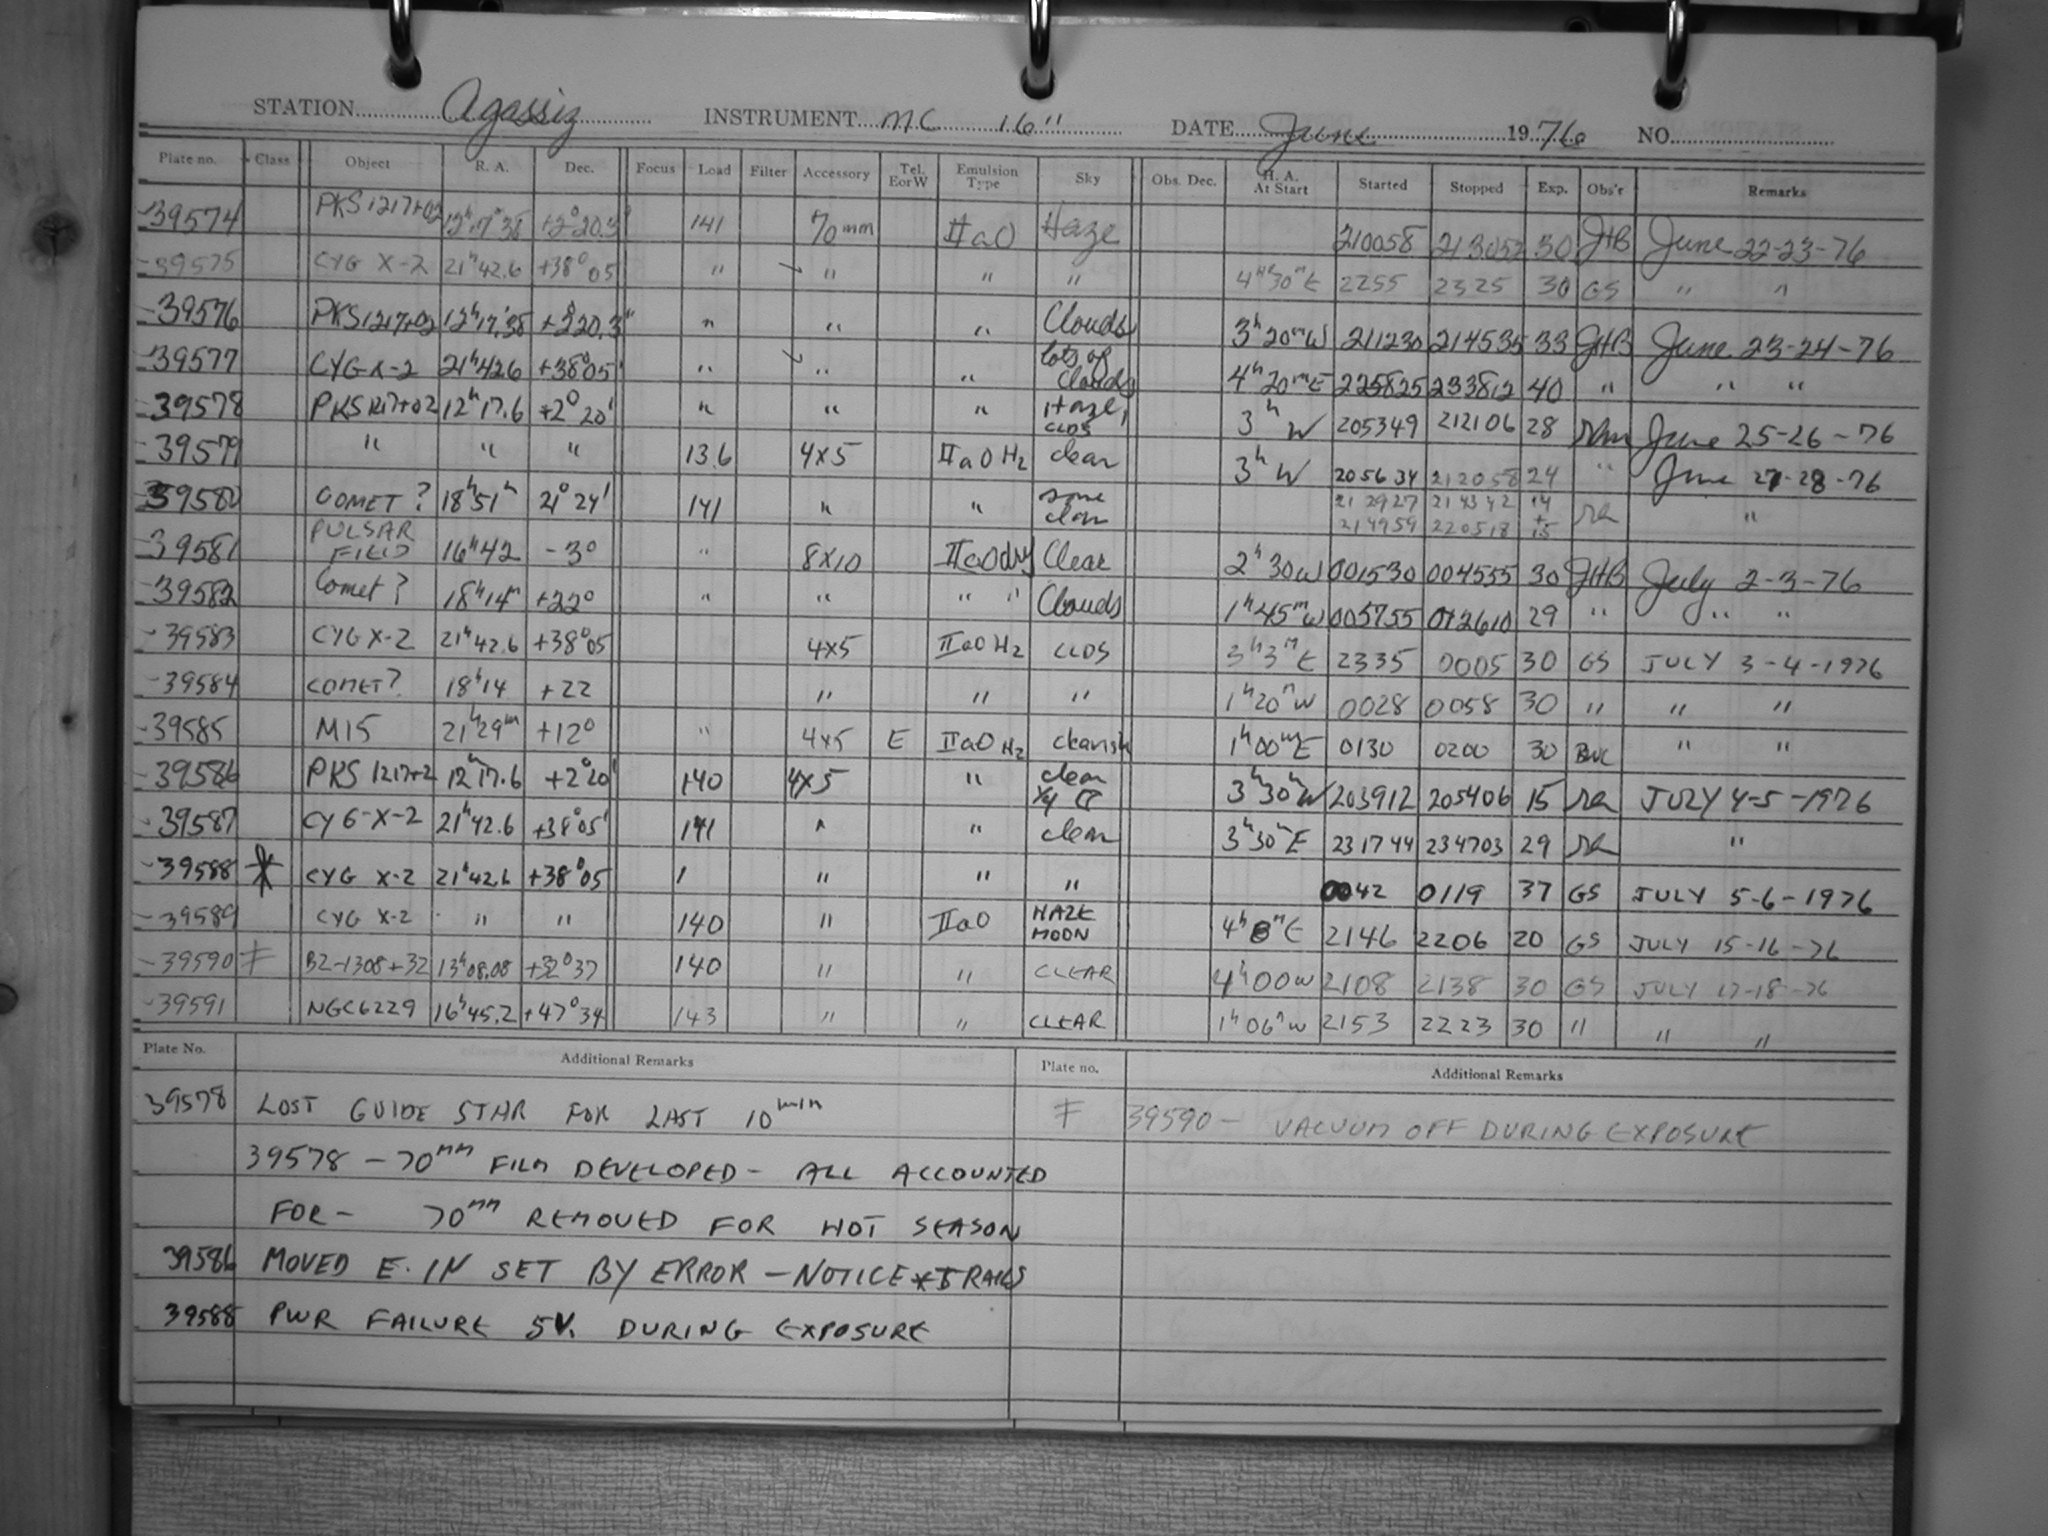 STATION Agassiz INSTRUMENT MC 16" DATE June 1976 NO.
Plate no. Class Object R. A. Dec. Focus Load Filter Accessory Tel. E or W Emulsion Type Sky Obs. Dec. H. A. At Start Started Stopped Exp. Obs'r Remarks
39574 PKS1217+02 12h17m38 +2°20.3' 141 70mm IIaO Haze 210058 213052 30 JHB June 22-23-76
39575 CYG X-2 21h42.6 +38°05' " " " " 4h30mE 2255 2325 30 GS " "
39576 PKS1217+02 12h17.38 +2°20.3' " " " Clouds 3h20mW 211230 214535 33 JHB June 23-24-76
39577 CYG X-2 21h42.6 +38°05' " " " lots of Clouds 4h20mE 225825 233812 40 " " "
39578 PKS1217+02 12h17.6 +2°20' " " " Haze, CLDS 3h W 205349 212106 28 June 25-26-76
39579 " " " 13.6 4x5 IIaO H2 clear 3h W 205634 212058 24 " June 27-28-76
39580 COMET? 18h51m 21°24' 141 " " some clou 212927 214342 14 + "
214959 220518 15
39581 PULSAR FIELD 16h42 -3° " 8x10 IIaO dry Clear 2h30W 001530 004555 30 JHB July 2-3-76
39582 Comet? 18h14m +22° " " " " Clouds 1h45mW 005755 012610 29 " " "
39583 CYG X-2 21h42.6 +38°05 4x5 IIaO H2 CLDS 3h3mE 2335 0005 30 GS JULY 3-4-1976
39584 COMET? 18h14 +22 " " " 1h20mW 0028 0058 30 " " "
39585 M15 21h29m +12° " 4x5 E IIaO H2 clearish 1h00mE 0130 0200 30 " "
39586 PKS 1217+2 12h17.6 +2°20' 140 4x5 " clear 3h30mW 203912 205406 15 JULY 4-5-1976
39587 CYG-X-2 21h42.6 +38°05' 141 " " clear 3h30mE 231744 234703 29 "
39588 * CYG X-2 21h42.6 +38°05 " " " 0042 0119 37 GS JULY 5-6-1976
39589 CYG X-2 " " 140 " IIaO HAZE MOON 4h8mE 2146 2206 20 GS JULY 15-16-76
39590 ‡ B2-1308+32 13h08.08 +32°37 140 " " CLEAR 4h00W 2108 2138 30 GS JULY 17-18-76
39591 NGC6229 16h45.2 +47°34 143 " " CLEAR 1h06mW 2153 2223 30 " " "
Plate No. Additional Remarks Plate no. Additional Remarks
39578 LOST GUIDE STAR FOR LAST 10min
39578 - 70mm FILM DEVELOPED - ALL ACCOUNTED
FOR - 70mm REMOVED FOR HOT SEASON
39586 MOVED E. IN SET BY ERROR - NOTICE * TRAILS
39588 PWR FAILURE 5V. DURING EXPOSURE
‡ 39590 - VACUUM OFF DURING EXPOSURE